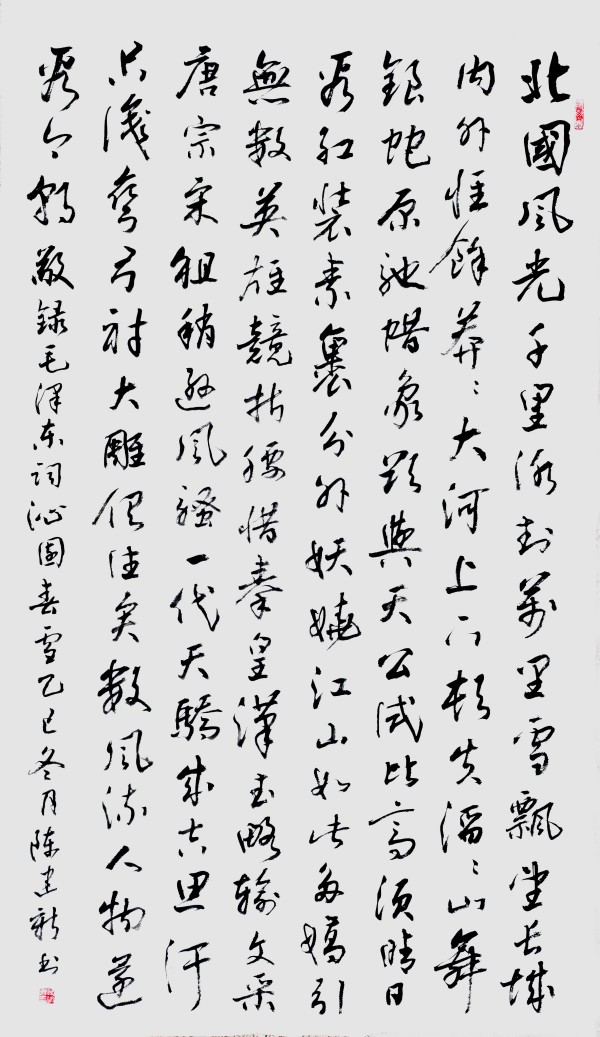 北國風光千里冰封萬里雪飄望長城
內外惟餘莽〻大河上下頓失滔〻山舞
銀蛇原馳蜡象欲與天公試比高須晴日
看紅裝素裹分外妖嬈江山如此多嬌引
無數英雄競折腰惜秦皇漢武略輸文采
唐宗宋祖稍遜風騷一代天驕成吉思汗
只識彎弓射大雕俱往矣數風流人物還
看今朝敬錄毛澤東詞沁園春雪乙巳冬月陳建新書